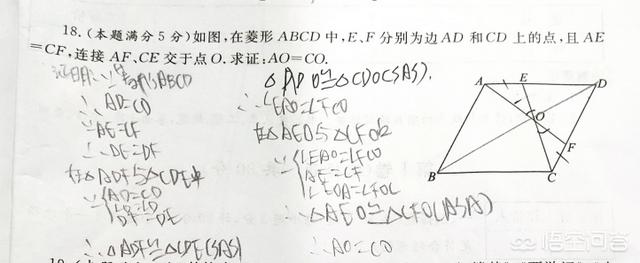 18.(本题满分5分)如图,在菱形ABCD中,E、F分别为边AD和CD上的点,且AE
=CF,连接AF、CE交于点O.求证:AO=CO.
证明:∵菱形ABCD
∴AD=CD
∵AE=CF
∴DE=DF
在△ADF与△CDE中
AD=CD
DF=DE
∴△ADF≌△CDE(SAS)
(SAS).
∴∠EAO=∠FCO
在△AEO与△CFO中
∵∠EAO=∠FCO
AE=CF
∠EOA=∠FOC
∴△AEO≌△CFO(ASA)
∴AO=CO
A
E
D
O
F
B
C
悟空问答